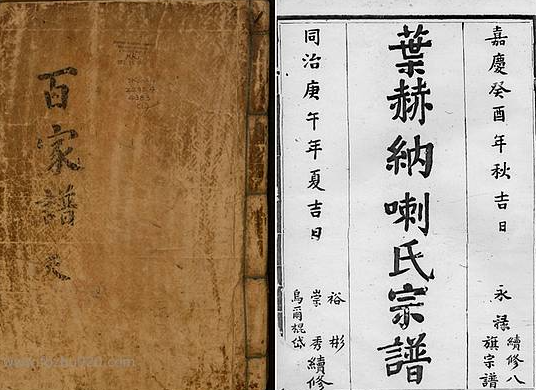 百家譜
嘉慶癸酉年秋吉日
永祿續修八旗宗譜
葉赫納喇氏宗譜
同治庚午年夏吉日
裕彬
崇秀續修
烏爾棍岱